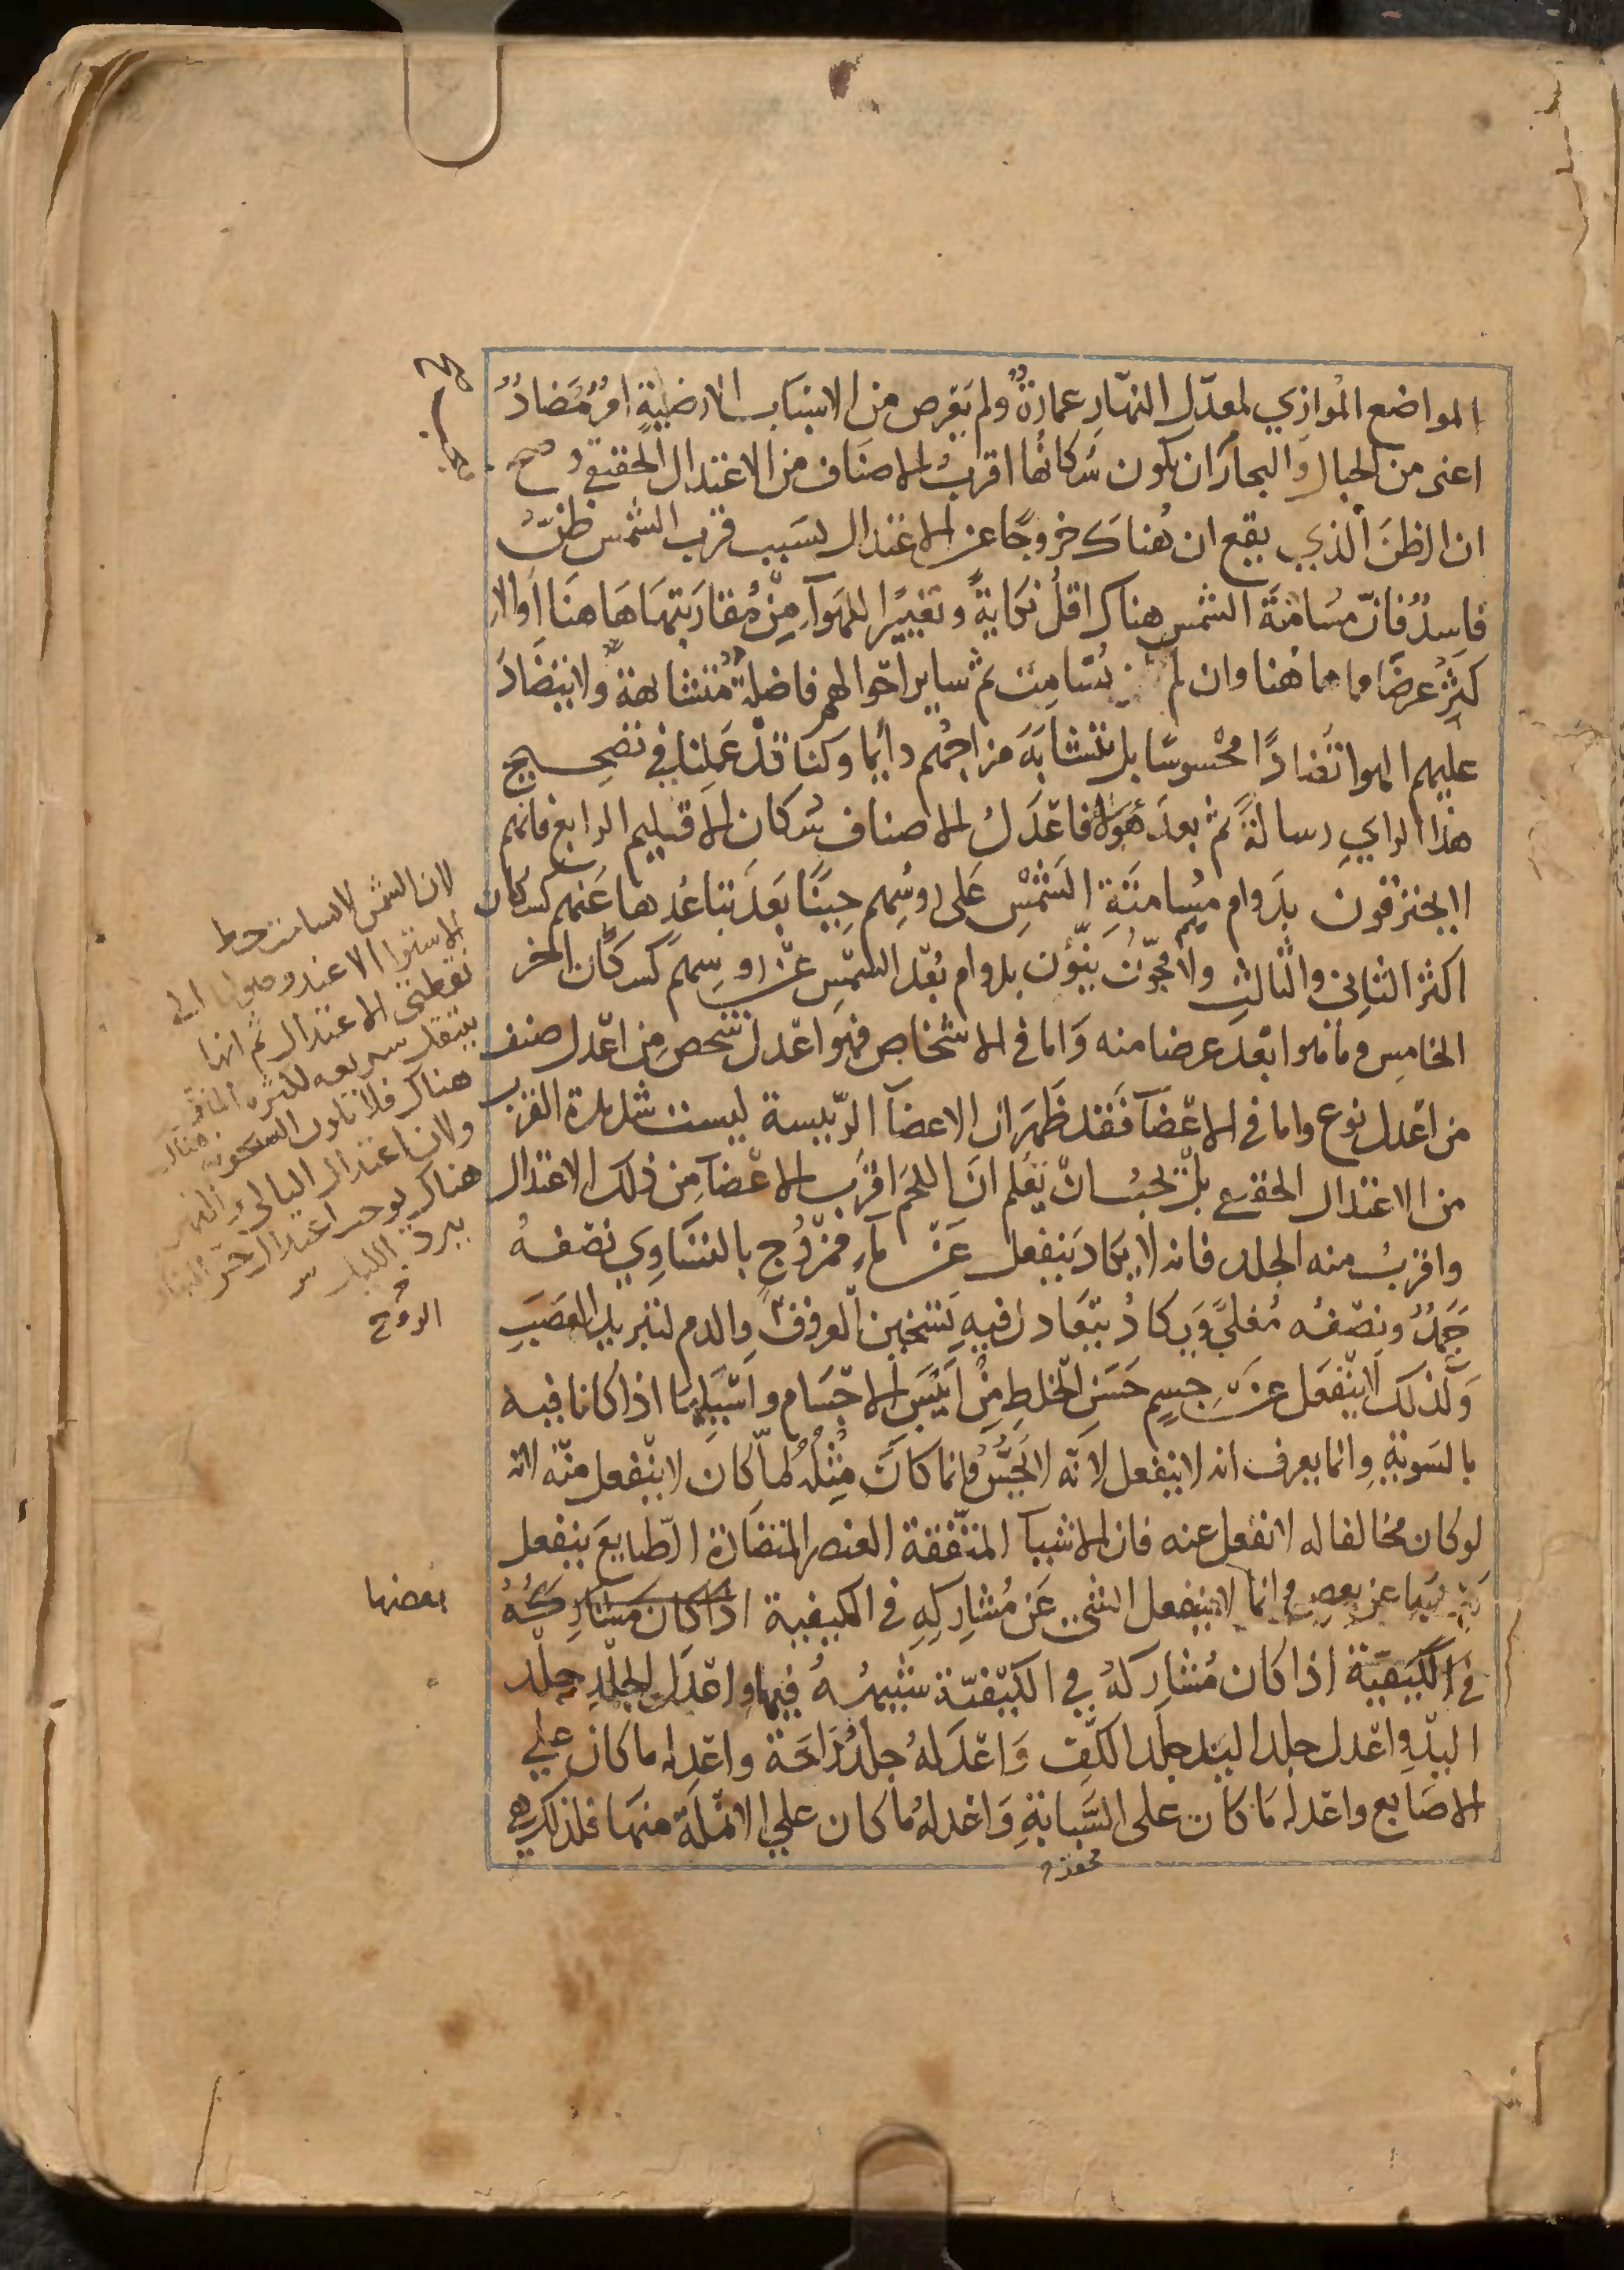 المواضع الموازي لمعدّل النهار عمارة ولم يعرض من الاسباب الارضية امرٌ مُضادٌ
اعنى من الجبال والبحار ان يكون سكانها اقربُ الاصناف من الاعتدال الحقيقي وصح
ان الظنَ الذي يقع ان هُناك خروجًا عن الاعتدال بسبب قرب الشمس ظنٌّ
فاسدٌ فانّ مسامتة الشمس هناك اقلُ نكايةً وتغييرًا للهوآءِ مِنْ مُقاربتها هاهنا او الا
كثرُ عرضًا مما هاهنا وان لم تسامت ثم ساير احوالهم فاضلةٌ متشابهةٌ ولا يتضادّ
عليهم الهوا تضادًا محْسوسًا بل تتشابَهَ مزاجهُم دايما وكنا قدْ عملنا في تصحيح
هذا الراي رسالةً ثم بعدَ هولآ فاعدَلُ الاصناف سُكان الاقليم الرابع فانهم
لا يحترقون بدَوام مسامتَةِ الشمسْ عَلى روسُهم حِينًا بعَدَ تباعُدِها عَنهم كسكان
اكثر الثانى والثالث ولا فجّون نيّون بدوام بعْد الشمسِ عنْ روسِهم كسكان اخر
الخامس وما هو ابعَدُ عرضا منه وَاما في الاشخاص فهو اعْدل شخصٍ مِن اعْدل صنف
من اعْدل نوع واما في الاعْضآ فقد ظهرَ ان الاعضآ الرّييسة ليست شديدة القرب
من الاعتدال الحقيقي بلْ يَجبُ انْ يَعْلم انَ اللحمَ اقرَب الاعْضآ مِن ذلك الاعتدال
واقربُ منه الجلد فانه لا يكادَ يَنفعل عَنْ مآءٍ ممْزوج بالتسَاوِي نصْفهُ
جَمدٌ ونصْفهُ مُغليً وَيَكادُ يتعَادل فيهِ تَسْخين العروقْ والدم لتبريد العصَبِ
وَلذلك لا ينْفعَل عنْ جسمٍ حَسَن الخلطِ مِنْ ايبَسِ الاجْسَام واسْيَلها اذا كانا فيه
بالسَويّةِ وانما يعرف انه لا ينفعل لانّه لا يُحسُّ وانما كان مثْلهُ لماّ كان لا ينفعل منّه لانه
لو كان مخالفا له لانفعل عنه فان الاشيآ المتّفقة العنصر المتضادة الطبايع ينفعل
بعضها عن بعض وانما لا ينفعل الشىء عَن مُشارِكِهِ فى الكيفية اذا كان مشاركهُ
في الكيَفيّة اذا كان مُشارِكهُ في الكيْفيّة شبيههُ فيها واعْدَل الجلْدِ جلْد
اليدّ واعْدل جلد اليَد جلَد الكفّ وَاعْدَلهُ جلدُ الراحَة واعْدله ما كان علي
الاصَابع واعْدله مَا كان على السَّبابَةِ وَاعْدلهُ ما كان علي الانملَة منهَا فلذلك هي
لان الشمس لا تسامت خط
الاستوا الا عند وصولها الى
نقطتى الاعتدال ثم انها
ينتقل سريعه لكثره
هناك فلا تكون السخونه هناك
ولان اعتدال الليالى
هناك يوجب اعتدال حرّ النهار
ببرد الليل
الروح
بعضها